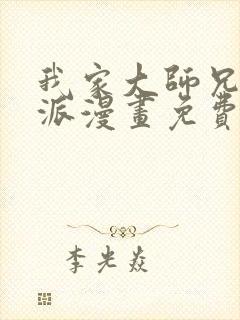 我家大師兄
派漫畫免費
李光焱